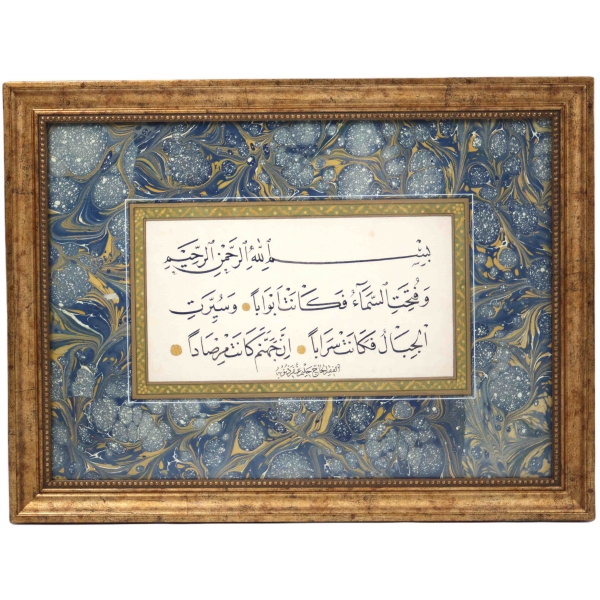 بِسْمِ اللّٰهِ الرَّحْمٰنِ الرَّحِيْمِ
وَفُتِحَتِ السَّمَآءُ فَكَانَتْ اَبْوَاباً ۝ وَسُيِّرَتِ
الْجِبَالُ فَكَانَتْ سَرَاباً ۝ اِنَّ جَهَنَّمَ كَانَتْ مِرْصَاداً ۝